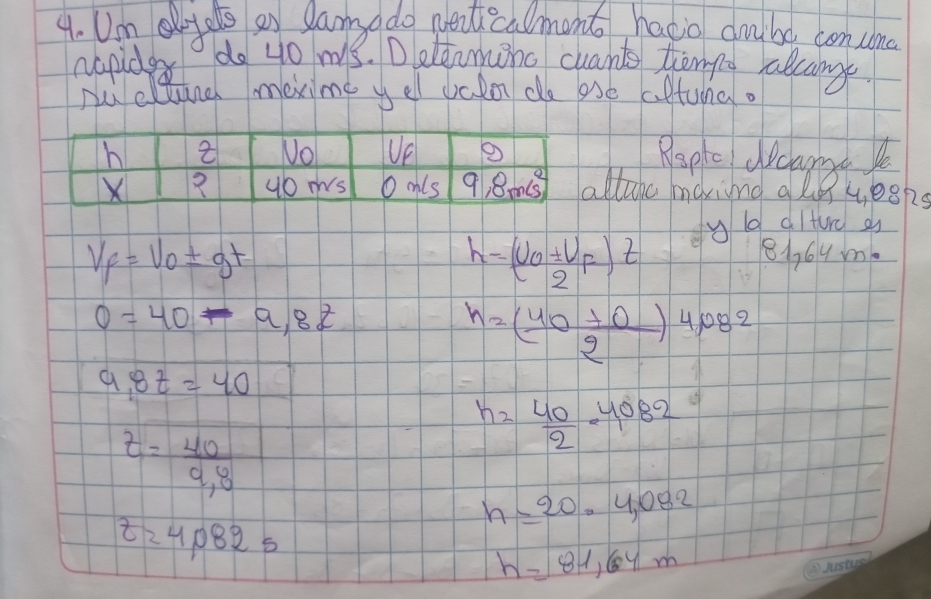 4. Um objeto es lanzado verticalmente hacia arriba con una
rapidez de 40 m/s. Determina cuanto tiempo alcanza
su altura máxima y el valor de esa altura.
h | t | Vo | VF | g
X | ? | 40 m/s | 0 m/s | 9,8m/s²
Rspta: Alcanza la
altura maxima a los 4,082s
y la altura es
81,64 m.
VF = Vo ± gt
0 = 40 - 9,8t
9,8t = 40
t = 40
9,8
t = 4,082 s
h = (Vo ± VF) t
2
h = (40 + 0) 4,082
2
h = 40 . 4,082
2
h = 20 . 4,082
h = 81,64 m
Justus